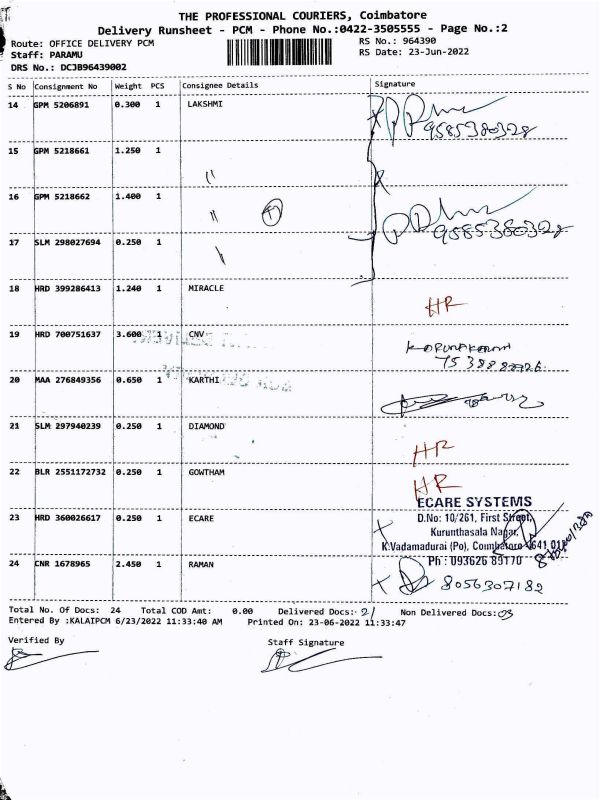 THE PROFESSIONAL COURIERS, Coimbatore
Delivery Runsheet - PCM - Phone No.:0422-3505555 - Page No.:2
Route: OFFICE DELIVERY PCM RS No.: 964390
Staff: PARAMU RS Date: 23-Jun-2022
DRS No.: DCJB96439002
S No Consignment No Weight PCS Consignee Details Signature
14 GPM 5206891 0.300 1 LAKSHMI
9585380328
15 GPM 5218661 1.250 1
"
16 GPM 5218662 1.400 1
"
17 SLM 298027694 0.250 1 9585380328
18 HRD 399286413 1.240 1 MIRACLE
HR
19 HRD 700751637 3.600 1 CNV
20 MAA 276849356 0.650 1 KARTHI
21 SLM 297940239 0.250 1 DIAMOND
HR
22 BLR 2551172732 0.250 1 GOWTHAM
HR
ECARE SYSTEMS
23 HRD 360026617 0.250 1 ECARE D.No: 10/261, First Street,
Kurunthasala Nagar,
K.Vadamadurai (Po), Coimbatore -641 017
24 CNR 1678965 2.450 1 RAMAN Ph : 093626 89170
8056307182
Total No. Of Docs: 24 Total COD Amt: 0.00 Delivered Docs: 21 Non Delivered Docs: 03
Entered By :KALAIPCM 6/23/2022 11:33:40 AM Printed On: 23-06-2022 11:33:47
Verified By Staff Signature